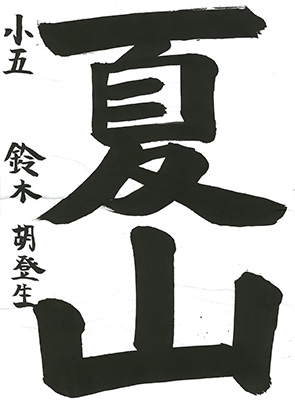 夏山
小五 鈴木 胡登生